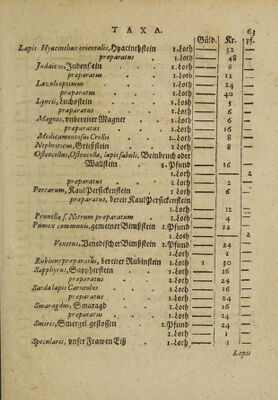 TAXA. 63
Güld. Kr. pf.
Lapis Hyacinthus orientalis, Hyacinthstein 1.Loth — 32 —
præparatus . 1.Loth — 48 —
Judaicus, Judenstein 1.Loth — 6 —
præparatus 1.Loth — 12 —
Lazuli optimus 1.Loth — 24 —
præparatus 1.Loth — 40 —
Lyncis, Luchsstein 1.Loth — 5 —
præparatus . 1.Loth — 6 —
Magnes, unbereiter Magnet 1.Loth — 6 —
præparatus 1.Loth — 16 —
Medicamentosus Crollii 1.Loth — 8 —
Nephriticus, Grießstein 1.Loth — 8 —
Osteocollus, Osteocolla, lapis sabuli, Beinbruch oder
Wallstein 1.Pfund — 16 —
1.Loth — — 2
præparatus 1.Loth — 2 —
Percarum, Kaul Persickenstein 1.Loth — 6 —
præparatus, bereit Kaul Persickenstein
1.Loth — 12 —
Prunella s. Nitrum præparatum 1.Loth — 4 —
Pumex communis, gemeiner Bimßstein 1.Pfund — 12 —
1.Loth — — 2
Venetus, Benedischer Bimßstein 1.Pfund — 24 —
1.Loth — 1 —
Rubinus præparatus, bereiter Rubinstein 1.Loth 1 30 —
Sapphyrus, Sapphirstein 1.Loth — 16 —
præparatus 1.Loth — 24 —
Sarda lapis Carneolus 1.Loth — 16 —
præparatus 1.Loth — 24 —
Smaragdus, Smaragd 1.Loth — 16 —
præparatus 1.Loth — 24 —
Smiris, Smergel gestossen 1.Pfund — 24 —
1.Loth — 1 —
Specularis, unser Frawen Eiß 1.Loth — 1 —
Lapis